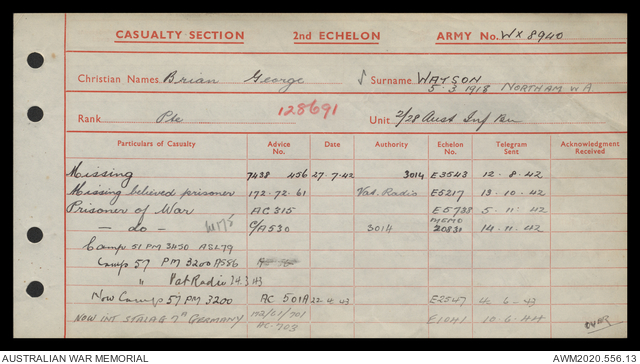 CASUALTY SECTION 2nd ECHELON ARMY No. WX 8940
Christian Names Brian George Surname WATSON
5.3.1918 NORTHAM W.A.
Rank Pte 128691 Unit 2/28 Aust Inf Bn
Particulars of Casualty Advice No. Date Authority Echelon No. Telegram Sent Acknowledgment Received
Missing 7438 456 27.7.42 3014 E3543 12.8.42
Missing believed prisoner 172.72.61 Vat. Radio E5217 13.10.42
Prisoner of War AC 315 E5738 5.11.42
— do — C/A530 3014 MEMO 20831 14.11.42
Camp 51 PM 3450 ASL79
Camp 57 PM 3200 AS86
" Vat Radio 14.3.43
Now Camp 57 PM 3200 AC 501A 22.4.43 E2547 4.6.43
NOW INT. STALAG 7A GERMANY 172/61/701 E1041 10.6.44
AC.703
OVER
AUSTRALIAN WAR MEMORIAL AWM2020.556.13